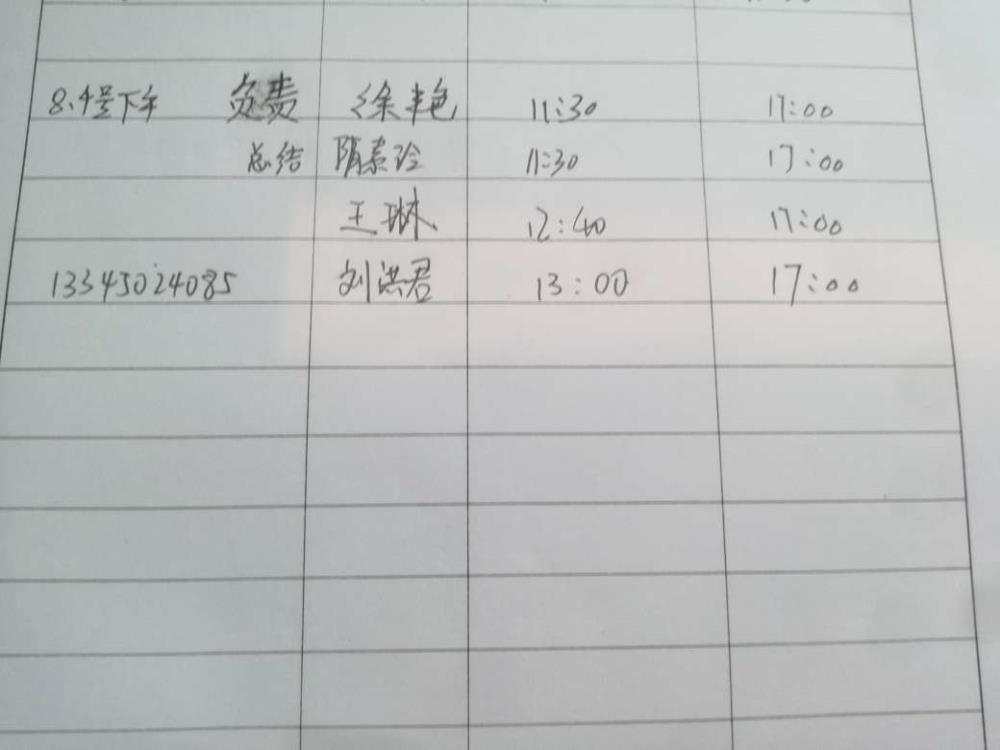 8.4号下午 负责 徐艳 11:30 17:00
总结 隋素玲 11:30 17:00
王琳 12:40 17:00
13345024085 刘洪君 13:00 17:00